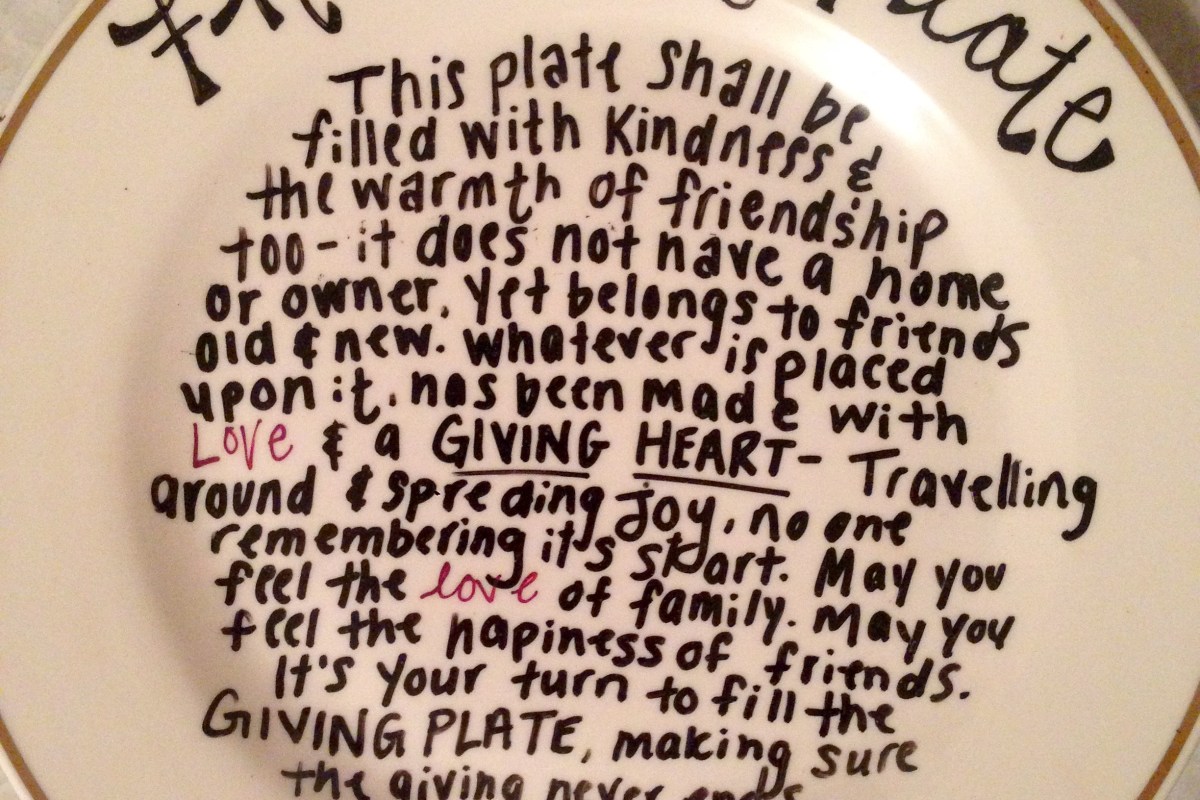 plate
This plate shall be
filled with Kindness &
the warmth of friendship
too - it does not have a home
or owner, yet belongs to friends
old & new. whatever is placed
upon it, has been made with
Love & a GIVING HEART - Travelling
around & spreding joy, no one
remembering it's start. May you
feel the love of family. May you
feel the hapiness of friends.
It's your turn to fill the
GIVING PLATE, making sure
the giving never ends